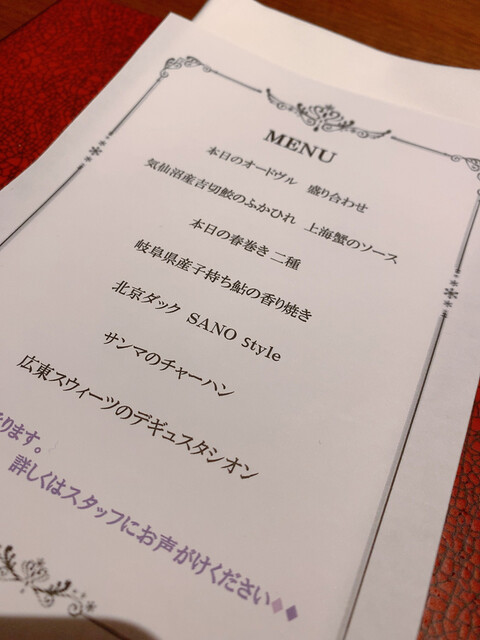 MENU
本日のオードヴル 盛り合わせ
気仙沼産吉切鮫のふかひれ 上海蟹のソース
本日の春巻き 二種
岐阜県産子持ち鮎の香り焼き
北京ダック SANO style
サンマのチャーハン
広東スウィーツのデギュスタシオン
ります。
詳しくはスタッフにお声がけください◆◆